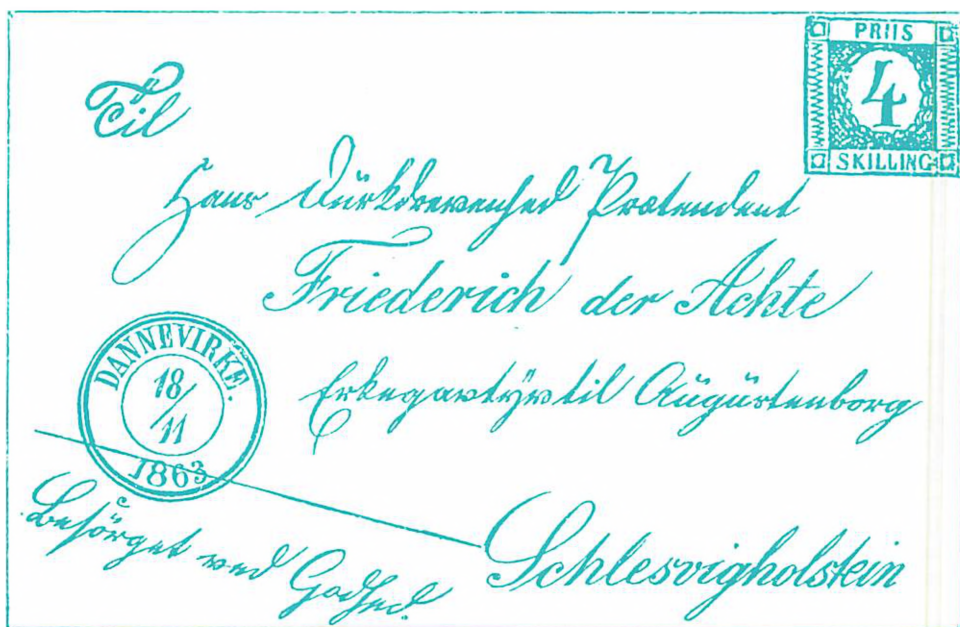 PRIIS
4
SKILLING
Til
Hans Durkdrevenhed Prætendent
Friederich der Achte
til Augustenborg
DANNEVIRKE.
18/11
1863
Schlesvigholstein
Besörget ved Godhed.